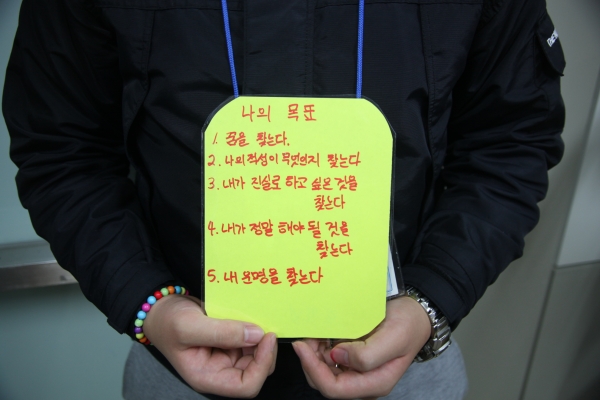 나의 목표
1. 꿈을 찾는다.
2. 나의 적성이 무엇인지 찾는다
3. 내가 진실로 하고 싶은 것을
찾는다
4. 내가 정말 해야 될 것을
찾는다
5. 내 운명을 찾는다